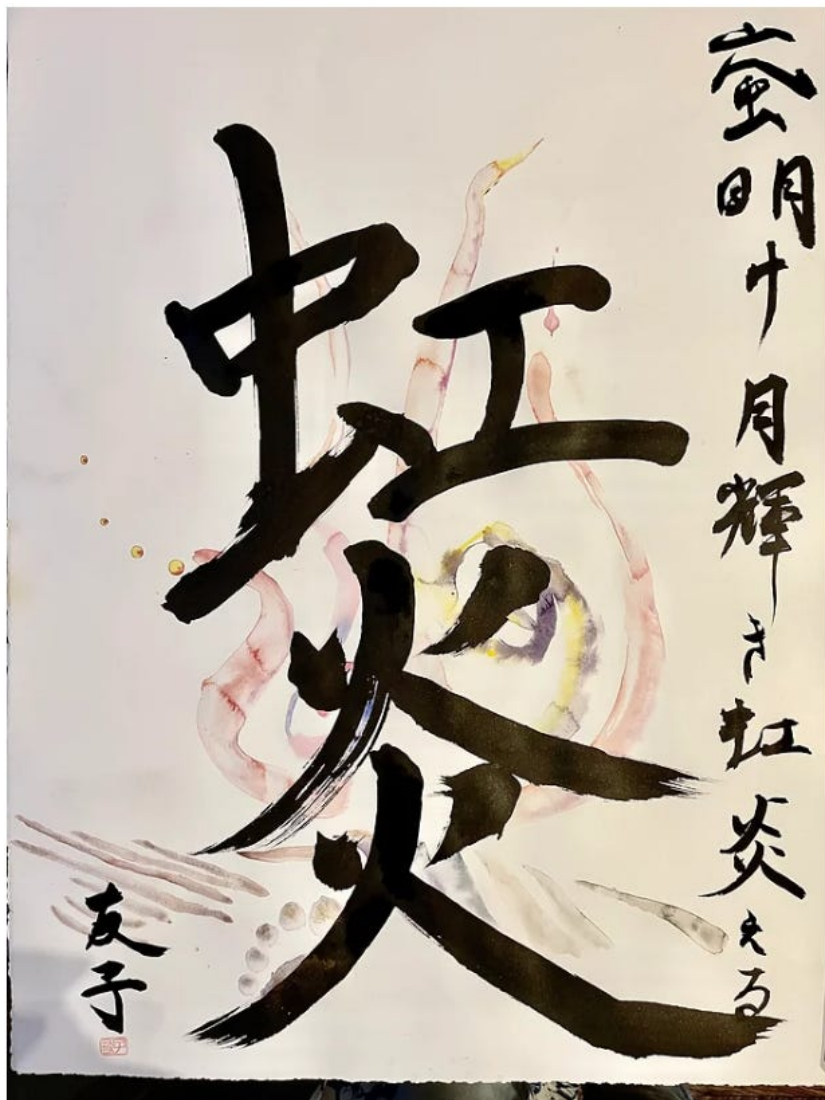 嵐明け月輝き虹炎える
虹炎
友子